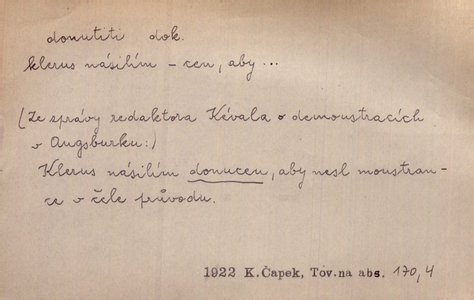 donutiti dok.
klerus násilím – cen, aby ...
(Ze správy redaktora Kévala o demonstracích
v Augsburku:)
Klerus násilím donucen, aby nesl monstran-
ce v čele průvodu.
1922 K.Čapek, Tov.na abs. 170,4